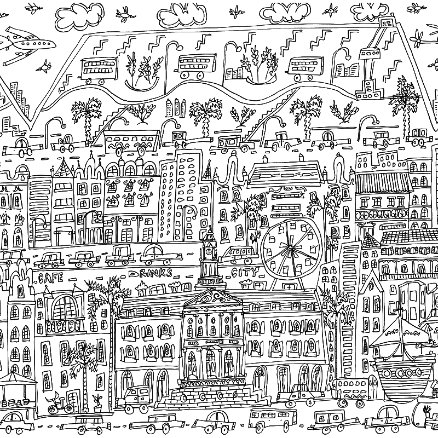 CAFE DRINKS CITY